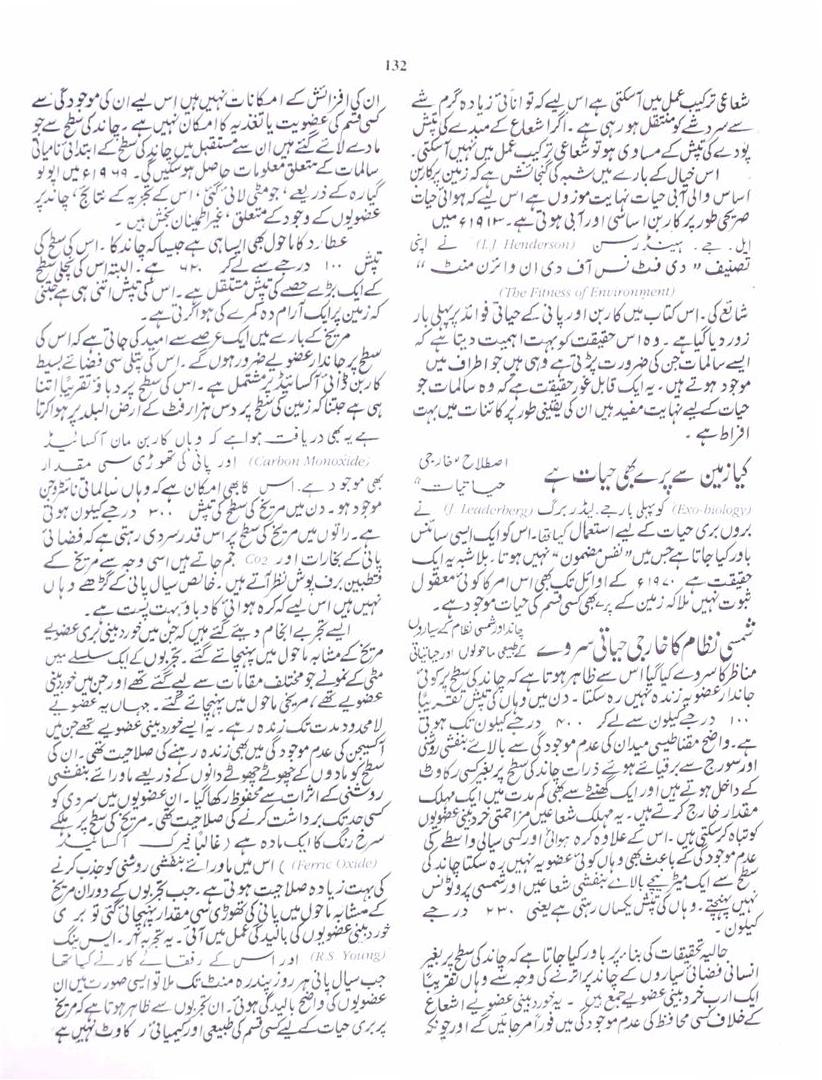 132
شعاعی ترکیب عمل میں آسکتی ہے اس لیے کہ توانائی زیادہ گرم شے
سے سرد شے کو منتقل ہو رہی ہے ۔ اگر اشعاع کے مبدے کی تپش
پودے کی تپش کے مساوی ہو تو شعاعی ترکیب عمل میں نہیں آسکتی۔
اس خیال کے بارے میں شبہ کی گنجائش ہے کہ زمین پر کاربن
اساس والی آبی حیات نہایت موزوں ہے اس لیے کہ ہوائی حیات
صریحی طور پر کاربن اساسی اور آبی ہوتی ہے۔ ۱۹۱۳ء میں
ایل ۔ جے ۔ ہینڈرسن (I.J Henderson) نے اپنی
تصنیف " دی فٹ نس آف دی ان وائرن منٹ "
(The Fitness of Environment)
شائع کی۔ اس کتاب میں کاربن اور پانی کے حیاتی فوائد پر پہلی بار
زور دیا گیا ہے ۔ وہ اس حقیقت کو بہت اہمیت دیتا ہے کہ
ایسے سالمات جن کی ضرورت پڑتی ہے وہی ہیں جو اطراف میں
موجود ہوتے ہیں ۔ یہ ایک قابل غور حقیقت ہے کہ وہ سالمات جو
حیات کے لیے نہایت مفید ہیں ان کی یقینی طور پر کائنات میں بہت
افراط ہے ۔
کیا زمین سے پرے بھی حیات ہے اصطلاح "خارجی
حیاتیات"
(Exo-biology) کو پہلی بار جے۔ لیڈر برگ (J. Leaderberg) نے
بروں بری حیات کے لیے استعمال کیا تھا۔ اس کو ایک ایسی سائنس
باور کیا جاتا ہے جس میں "نفس مضمون" نہیں ہوتا ۔ بلا شبہ یہ ایک
حقیقت ہے ۱۹۷۰ء کے اوائل تک بھی اس امر کا کوئی معقول
ثبوت نہیں ملا کہ زمین کے پرے بھی کسی قسم کی حیات موجود ہے ۔
شمسی نظام کا خارجی حیاتی سروے چاند اور شمسی نظام کے سیاروں
کے طبیعی ماحولوں اور حیاتیاتی
مناظر کا سروے کیا گیا اس سے ظاہر ہوتا ہے کہ چاند کی سطح پر کوئی
جاندار عضویہ زندہ نہیں رہ سکتا ۔ دن میں وہاں کی تپش تقریباً
۱۰۰ درجے کیلون سے لے کر ۴۰۰ درجے کیلون تک ہوتی
ہے۔ واضح مقناطیسی میدان کی عدم موجودگی سے بالائے بنفشی روشنی
اور سورج سے برقیائے ہوئے ذرات چاند کی سطح پر بغیر کسی رکاوٹ
کے داخل ہوتے ہیں اور ایک گھنٹے سے بھی کم مدت میں ایک مہلک
مقدار خارج کرتے ہیں۔ یہ مہلک شعاعیں مزاحمتی خرد بینی عضویوں
کو تباہ کر سکتی ہیں ۔ اس کے علاوہ کرہ ہوائی اور کسی سیالی واسطے کی
عدم موجودگی کے باعث بھی وہاں کوئی عضویہ نہیں رہ سکتا چاند کی
سطح سے ایک میٹر نیچے بالائے بنفشی شعاعیں اور شمسی پروٹونس
نہیں پہنچتے ۔ وہاں کی تپش یکساں رہتی ہے یعنی ۲۳۰ درجے
کیلون ۔
حالیہ تحقیقات کی بناء پر باور کیا جاتا ہے کہ چاند کی سطح پر بغیر
انسانی فضائی سیاروں کے چاند پر اترنے کی وجہ سے وہاں تقریباً
ایک ارب خرد بینی عضویے جمع ہیں ۔ یہ خورد بینی عضویے اشعاع
کے خلاف کسی محافظ کی عدم موجودگی میں فوراً مر جائیں گے اور چونکہ
ان کی افزائش کے امکانات نہیں ہیں اس لیے ان کی موجودگی سے
کسی قسم کی عضویت یا تغذیہ کا امکان نہیں ہے ۔ چاند کی سطح سے جو
مادے لائے گئے ہیں ان سے مستقبل میں چاند کی سطح کے ابتدائی نامیاتی
سالمات کے متعلق معلومات حاصل ہو سکیں گی۔ ۱۹۶۹ء میں اپولو
گیارہ کے ذریعے، جو مٹی لائی گئی، اس کے تجزیہ کے نتائج، چاند پر
عضویوں کے وجود کے متعلق، غیر اطمینان بخش ہیں ۔
عطارد کا ماحول بھی ایسا ہی ہے جیسا کہ چاند کا ۔ اس کی سطح کی
تپش ۱۰۰ درجے سے لے کر ۶۲۰ ہے ۔ البتہ اس کی نچلی سطح
کے ایک بڑے حصے کی تپش مستقل ہے ۔ اس کی تپش اتنی ہی ہے جتنی
کہ زمین پر ایک آرام دہ کمرے کی ہوا کرتی ہے ۔
مریخ کے بارے میں ایک عرصے سے امید کی جاتی ہے کہ اس کی
سطح پر جاندار عضویے ضرور ہوں گے ۔ اس کی پتلی سی فضائے بسیط
کاربن ڈائی آکسائیڈ پر مشتمل ہے ۔ اس کی سطح پر دباؤ تقریباً اتنا
ہی ہے جتنا کہ زمین کی سطح پر دس ہزار فٹ کے ارض البلد پر ہوا کرتا
ہے یہ بھی دریافت ہوا ہے کہ وہاں کاربن مان آکسائیڈ
(Carbon Monoxide) اور پانی کی تھوڑی سی مقدار
بھی موجود ہے ۔ اس کا بھی امکان ہے کہ وہاں سالماتی نائٹروجن
موجود ہو۔ دن میں مریخ کی سطح کی تپش ۳۰۰ درجے کیلون ہوتی
ہے ۔ راتوں میں مریخ کی سطح پر اس قدر سردی رہتی ہے کہ فضائی
پانی کے بخارات اور Co2 جم جاتے ہیں اسی وجہ سے مریخ کے
قطبین برف پوش نظر آتے ہیں ۔ خالص سیال پانی کے گڑھے وہاں
نہیں ہیں اس لیے کہ کرہ ہوائی کا دباؤ بہت پست ہے ۔
ایسے تجربے انجام دیئے گئے ہیں کہ جن میں خورد بینی بری عضویے
مریخ کے مشابہ ماحول میں پہنچائے گئے ۔ تجربوں کے ایک سلسلے میں
مٹی کے نمونے جو مختلف مقامات سے لیے گئے تھے اور جن میں خورد بینی
عضویے تھے، مریخی ماحول میں پہنچائے گئے ۔ جہاں یہ عضویے
لامحدود مدت تک زندہ رہے ۔ یہ ایسے خورد بینی عضویے تھے جن میں
آکسیجن کی عدم موجودگی میں بھی زندہ رہنے کی صلاحیت تھی۔ ان کی
سطح کو مادوں کے چھوٹے چھوٹے دانوں کے ذریعے ماورائے بنفشی
روشنی کے اثرات سے محفوظ رکھا گیا ۔ ان عضویوں میں سردی کو
کسی حد تک برداشت کرنے کی صلاحیت تھی ۔ مریخ کی سطح پر ہلکے
سرخ رنگ کا ایک مادہ ہے ( غالباً فیرک آکسائیڈ
(Ferric Oxide) ) اس میں ماورائے بنفشی روشنی کو جذب کرنے
کی بہت زیادہ صلاحیت ہوتی ہے ۔ جب تجربوں کے دوران مریخ
کے مشابہ ماحول میں پانی کی تھوڑی سی مقدار پہنچائی گئی تو بری
خورد بینی عضویوں کی بالیدگی عمل میں آئی ۔ یہ تجربہ آر ۔ ایس ینگ
(R.S. Young) اور اس کے رفقائے کار نے کیا تھا
جب سیال پانی ہر روز پندرہ منٹ تک ملا تو ایسی صورت میں ان
عضویوں کی واضح بالیدگی ہوئی ۔ ان تجربوں سے ظاہر ہوتا ہے کہ مریخ
پر بری حیات کے لیے کسی قسم کی طبیعی اور کیمیائی رکاوٹ نہیں ہے